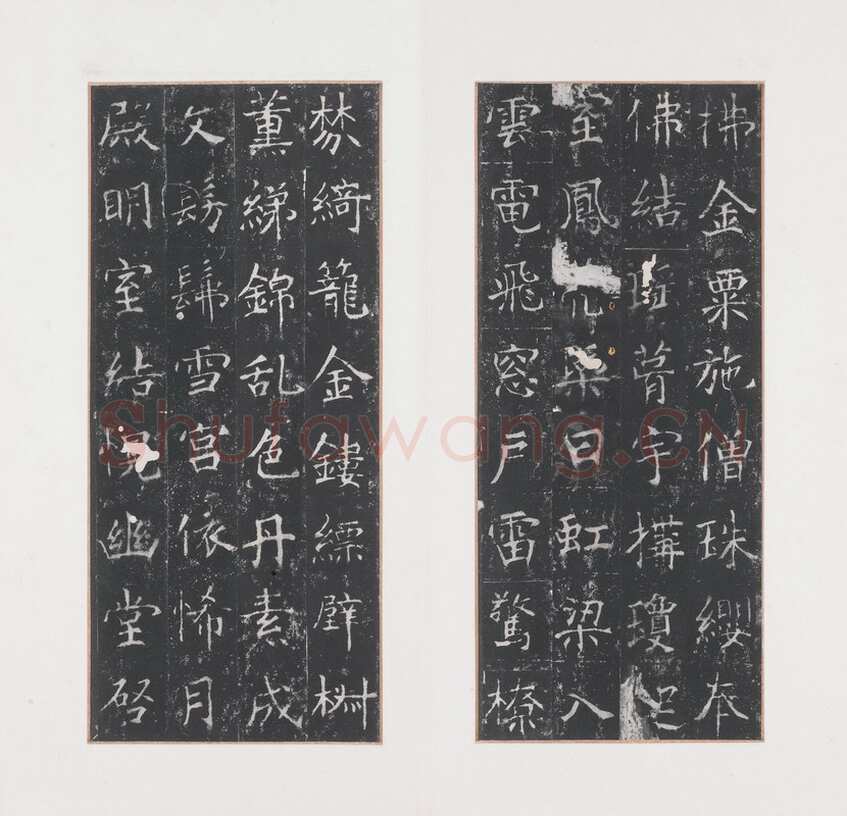 拂金粟施僧珠纓奉
佛結宇構瓊
室鳳日虹梁入
雲電飛窓戶雷驚橑
棼綺籠金鏤縹壁椒
薰綈錦乱色丹素成
文髣髴雪宮依悕月
殿明室結愰幽堂啓
Shufawang.CN